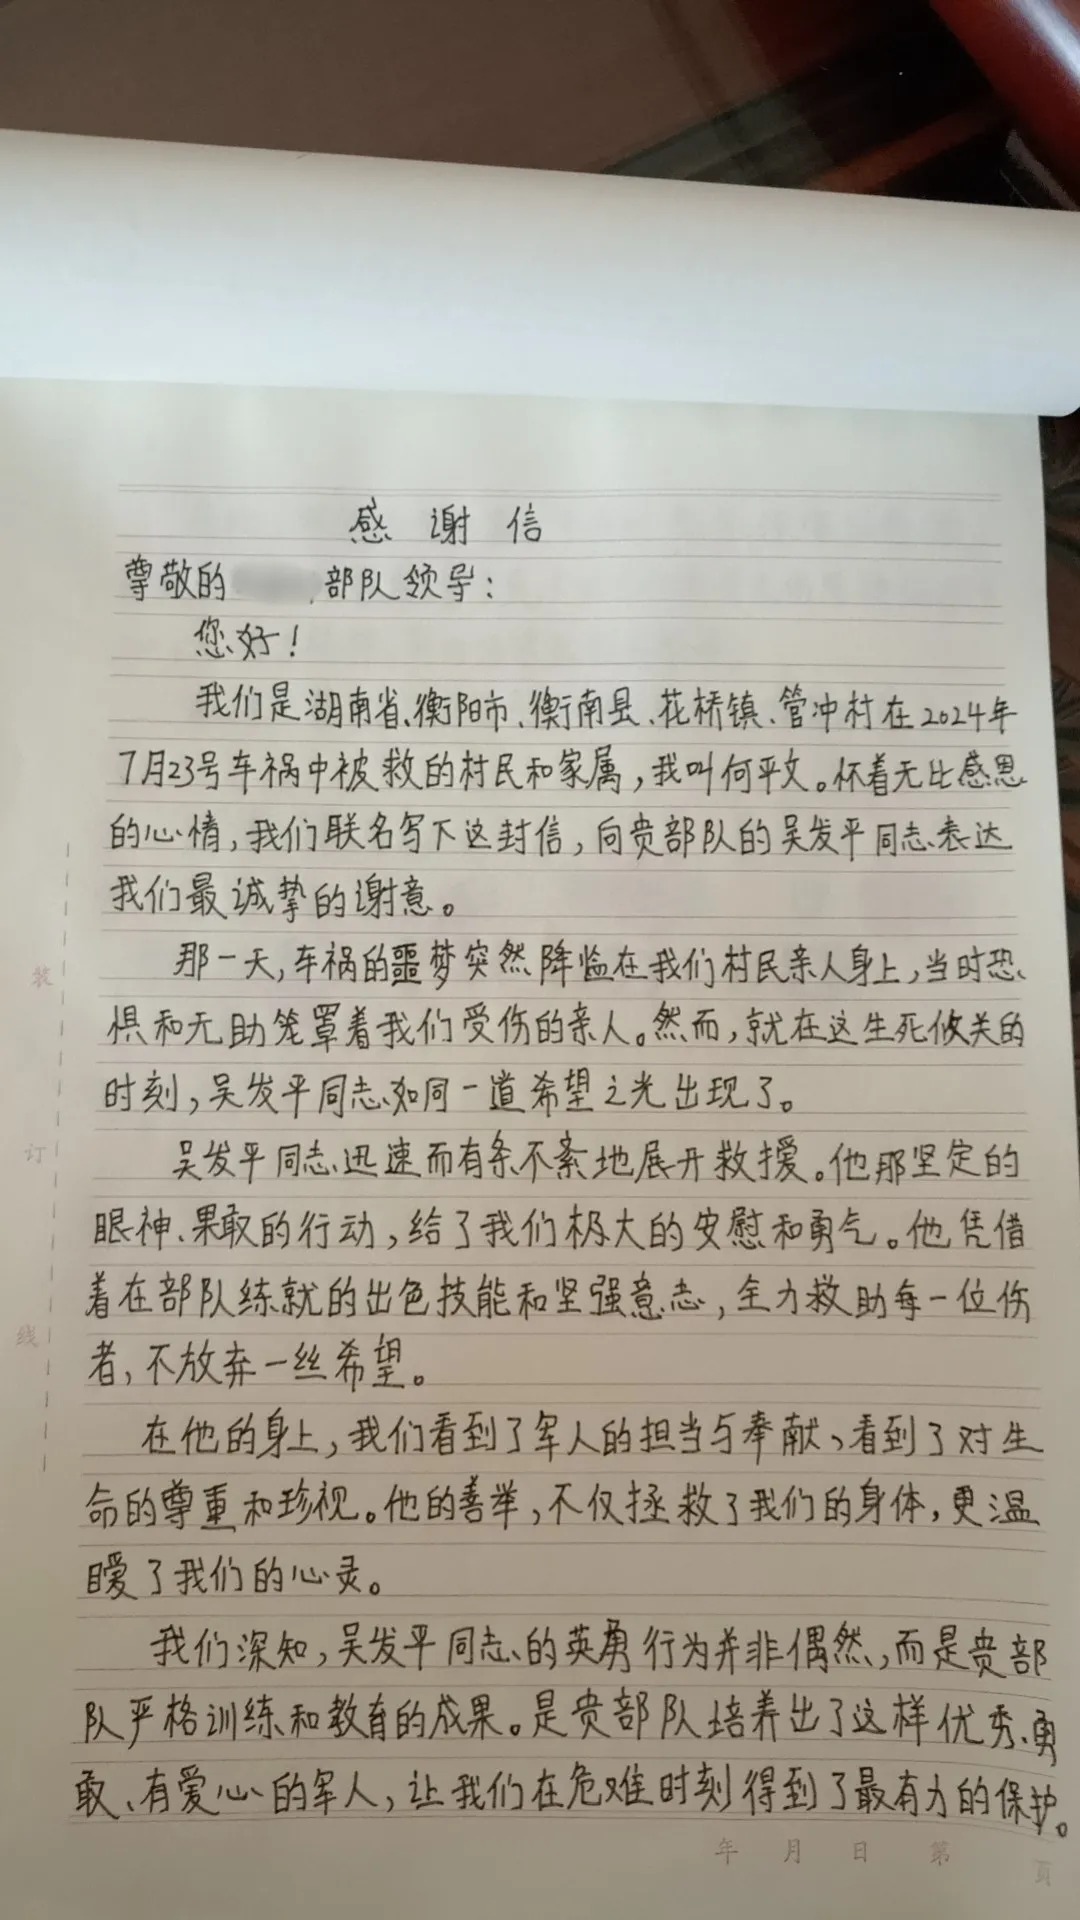 感谢信
尊敬的 部队领导：
您好！
我们是湖南省、衡阳市、衡南县、花桥镇、管冲村在2024年
7月23号车祸中被救的村民和家属，我叫何平文。怀着无比感恩
的心情，我们联名写下这封信，向贵部队的吴发平同志表达
我们最诚挚的谢意。
那一天，车祸的噩梦突然降临在我们村民亲人身上，当时恐
惧和无助笼罩着我们受伤的亲人。然而，就在这生死攸关的
时刻，吴发平同志如同一道希望之光出现了。
吴发平同志迅速而有条不紊地展开救援。他那坚定的
眼神、果敢的行动，给了我们极大的安慰和勇气。他凭借
着在部队练就的出色技能和坚强意志，全力救助每一位伤
者，不放弃一丝希望。
在他的身上，我们看到了军人的担当与奉献、看到了对生
命的尊重和珍视。他的善举，不仅拯救了我们的身体，更温
暖了我们的心灵。
我们深知，吴发平同志的英勇行为并非偶然，而是贵部
队严格训练和教育的成果。是贵部队培养出了这样优秀、勇
敢、有爱心的军人，让我们在危难时刻得到了最有力的保护。
年 月 日 第 页
装
订
线